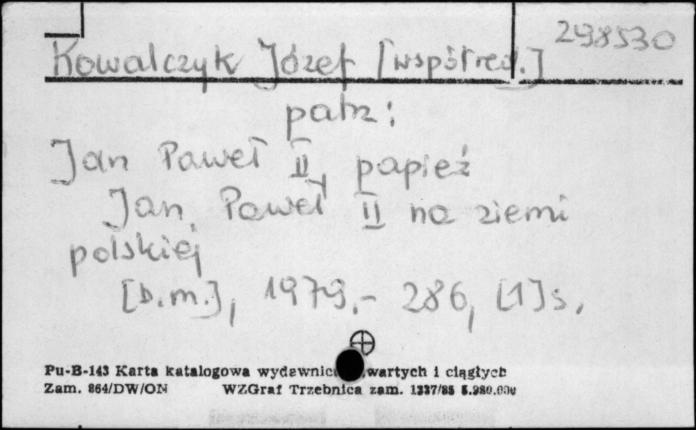 298530
Kowalczyk Józef [współred.]
patrz:
Jan Paweł II, papież
Jan Paweł II na ziemi
polskiej
[b.m.], 1979.- 286, [1]s.
Pu-B-143 Karta katalogowa wydawnic wartych i ciągłych
Zam. 864/DW/ON WZGraf Trzebnica zam. 1337/85 5.980.000